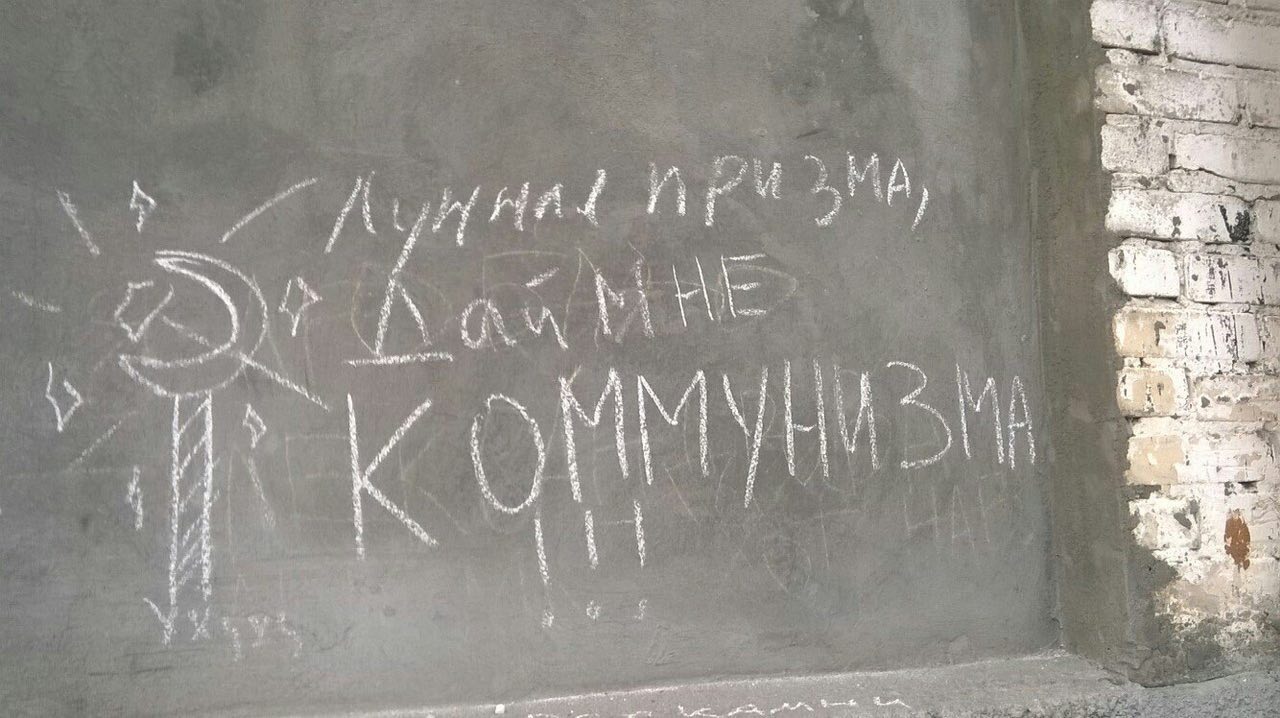 Лунная призма,
Дай мне
КОММУНИЗМА
!!!